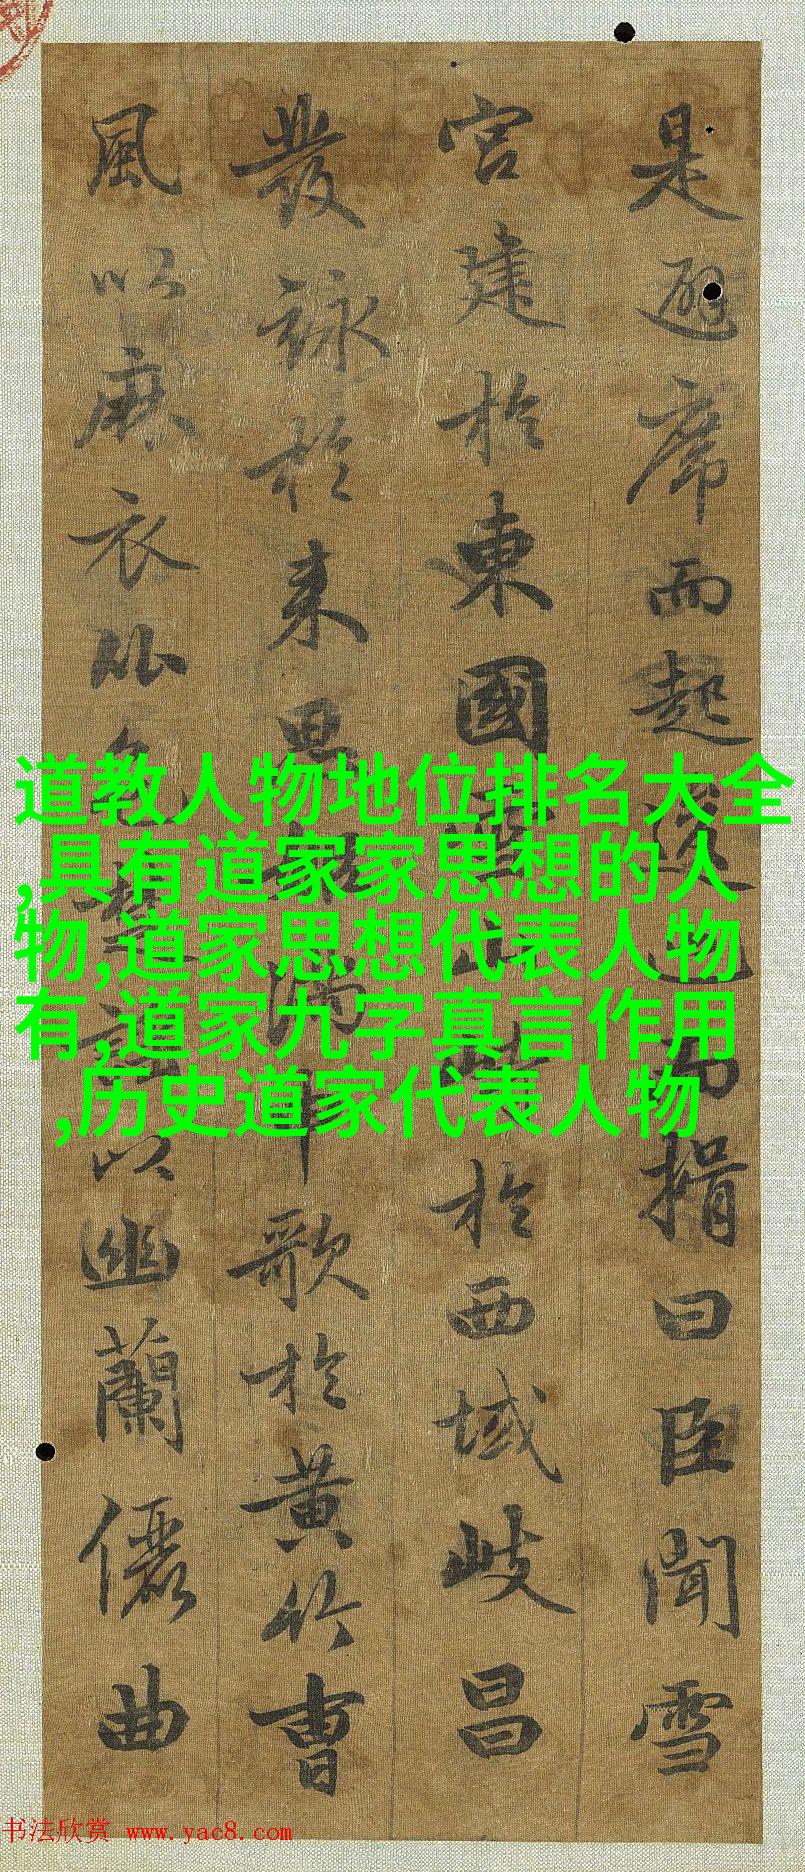 是避席而起逡揖曰臣聞雪
宮建於東國於西域岐昌
發詠於來思滿歌於黃竹曹
風以麻衣比色以幽蘭儷曲
道教人物地位排名大全
,具有道家家思想的人
物,道家思想代表人物
有,道家九字真言作用
,历史道家代表人物
书法欣赏 www.yac8.com